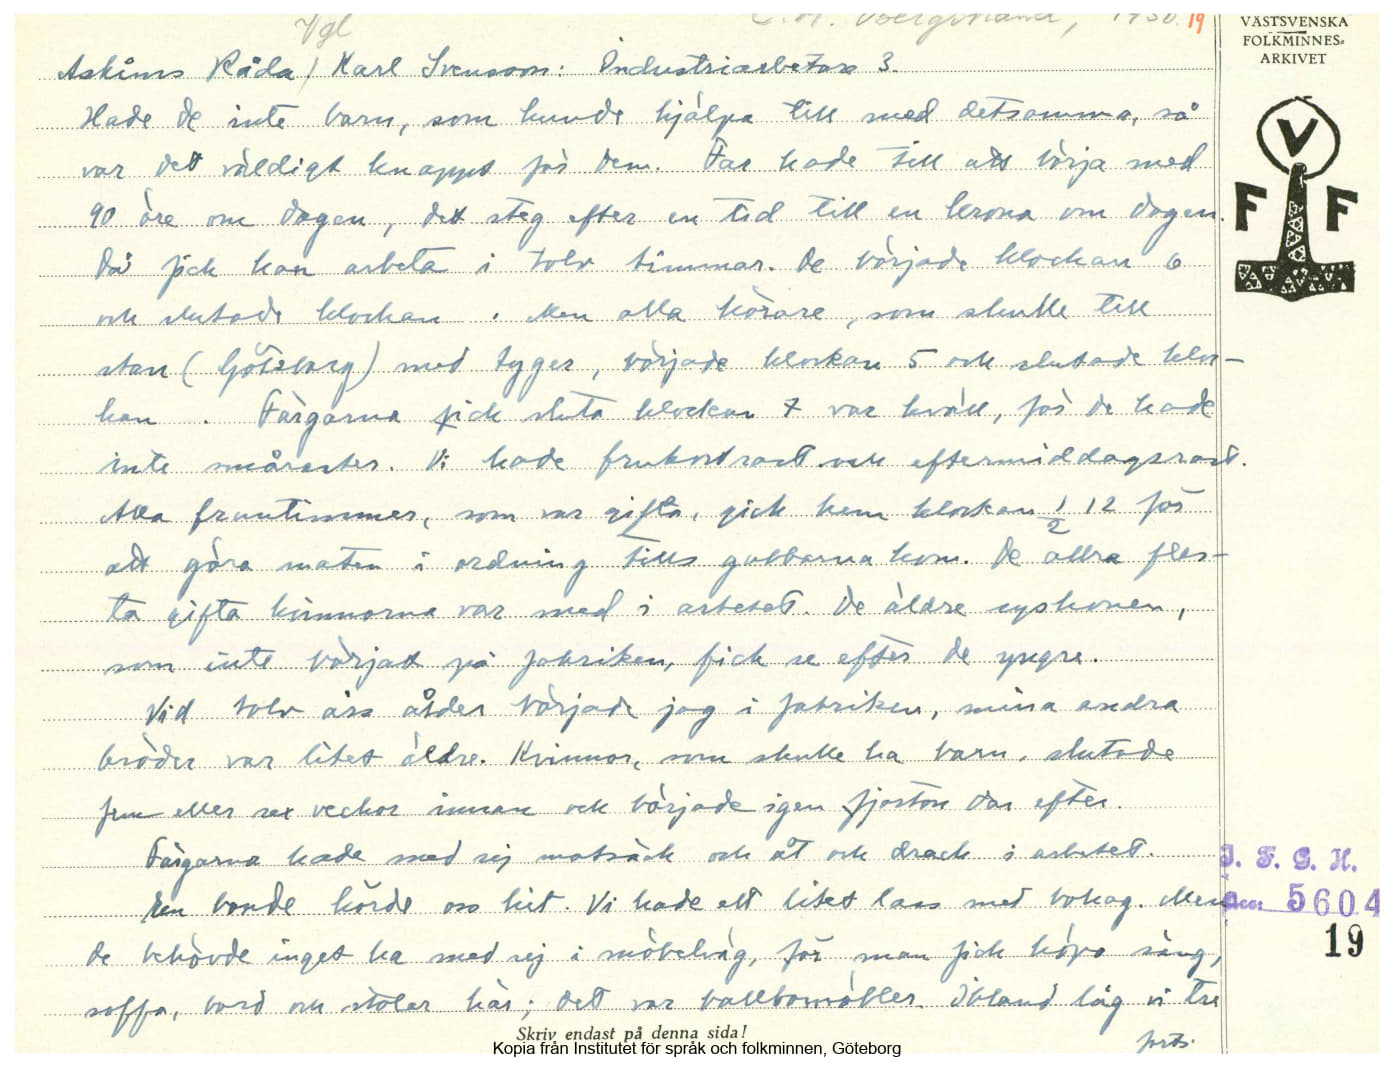 Vgl
C. M. Bergstrand, 1930. 19
VÄSTSVENSKA
FOLKMINNES-
ARKIVET
V
F F
Askims Råda / Karl Svensson: Industriarbetare 3.
Hade de inte barn, som kunde hjälpa till med detsamma, så
var det väldigt knappt för dem. Far hade till att börja med
90 öre om dagen, det steg efter en tid till en krona om dagen.
Då fick han arbeta i tolv timmar. De började klockan 6
och slutade klockan . Men alla körare, som skulle till
stan (Göteborg) med tyger, började klockan 5 och slutade kloc-
kan . Färgarna fick sluta klockan 7 var kväll, för de hade
inte småraster. Vi hade frukostrast och eftermiddagsrast.
Alla fruntimmer, som var gifta, gick hem klockan 1/2 12 för
att göra maten i ordning tills gubbarna kom. De allra fles-
ta gifta kvinnorna var med i arbetet. De äldre syskonen,
som inte börjat på fabriken, fick se efter de yngre.
Vid tolv års ålder började jag i fabriken, mina andra
bröder var litet äldre. Kvinnor, som skulle ha barn, slutade
fem eller sex veckor innan och började igen fjorton dar efter.
Färgarna hade med sej matsäck och åt och drack i arbetet.
En bonde körde oss hit. Vi hade ett litet lass med bohag. Men
de behövde inget ha med sej i möbelväg, för man fick köpa säng,
soffa, bord och stolar här; det var vallbomöbler. Ibland låg vi tre
forts.
I. F. G. H.
Acc. 5604
19
Skriv endast på denna sida!
Kopia från Institutet för språk och folkminnen, Göteborg